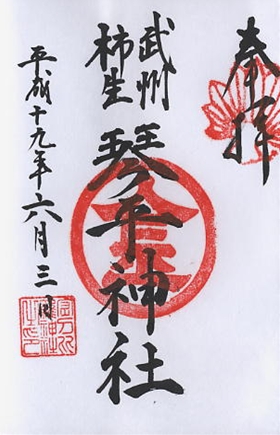 奉拝
武州
柿生
琴平神社
平成十九年六月三日